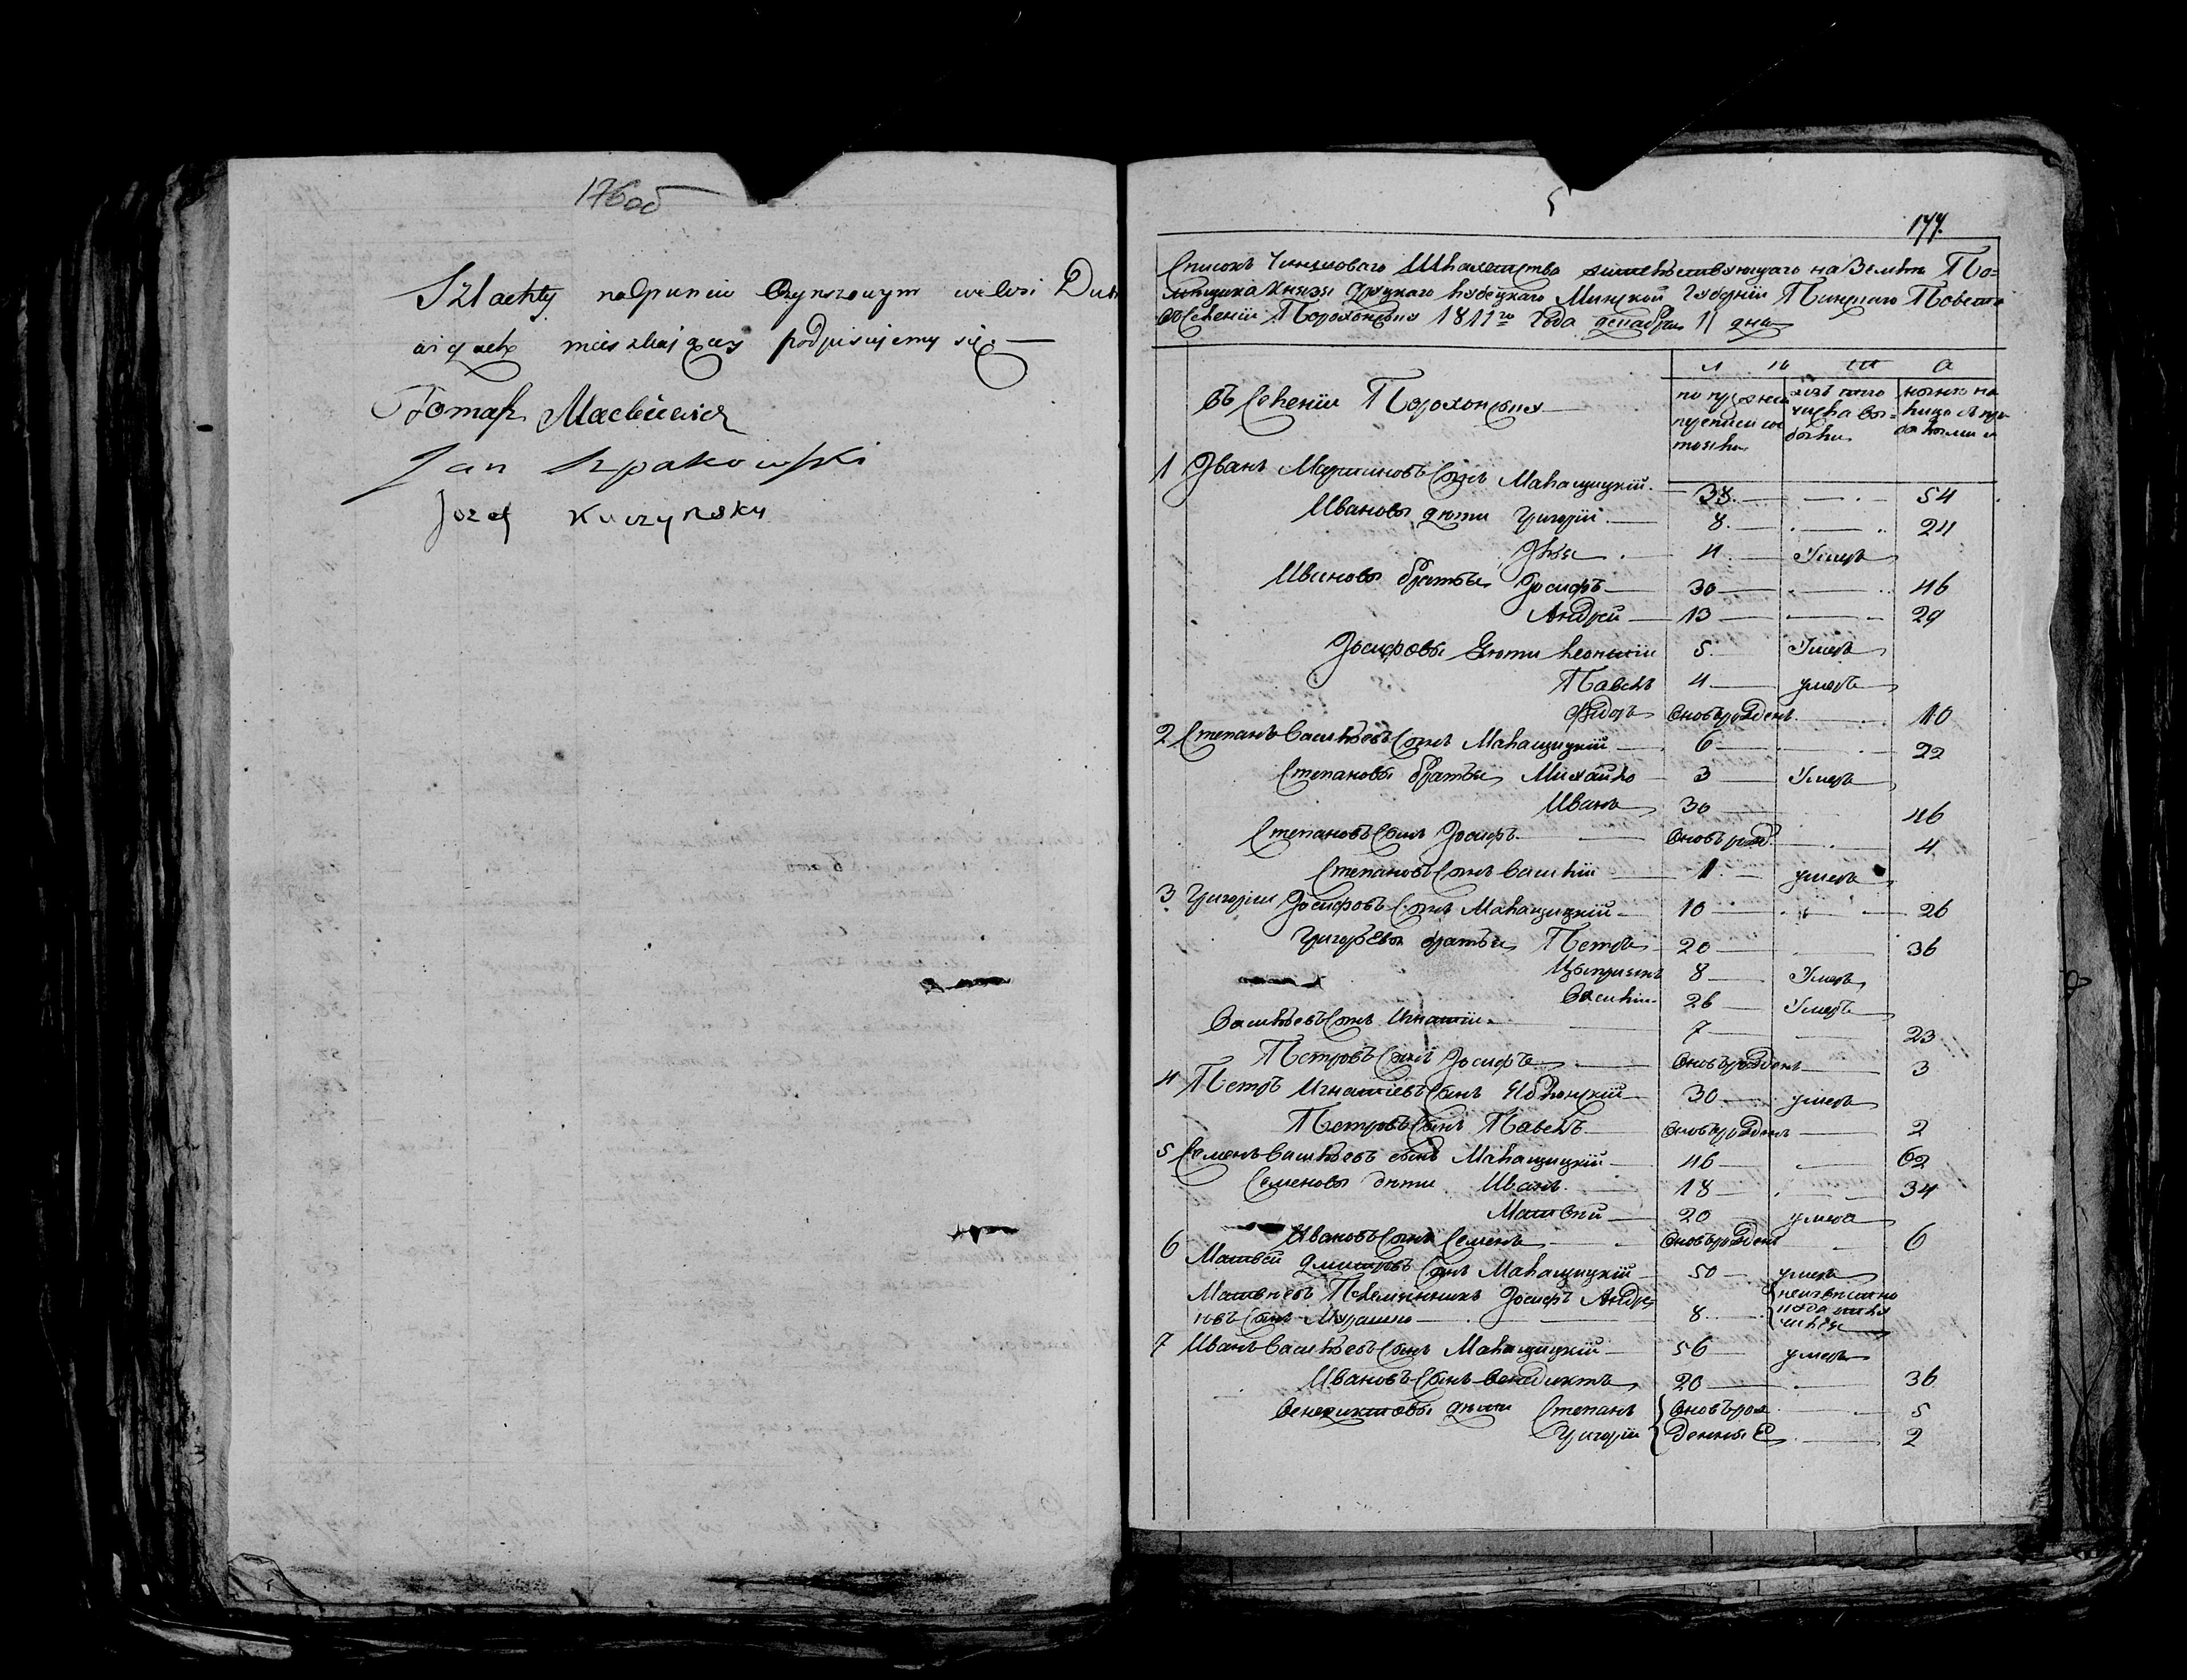 176об
Szlachty na Gruncie Czynszowym we wsi Dub
aiącety mieszkaiący podpisujemy się
Tomasz Mackiewicz
Jan Szpakowski
Jozef Kuczynsky
5
177.
Списокъ Чиншоваго Шляхетства жительствующаго на Земли По=
мещика Князя Друцкаго Любецкаго Минской Губерніи Пинскаго Повета
въ Селеніи Порохонску 1811го Года декабря 11 дня
Л Ѣ Т А
въ Селеніи Порохонску
по прежней ревизіи состояло
изъ того числа выбыло
ныне на лицо
1 Иванъ Мартиновъ Сынъ Малащицкій 38 54
Ивановы дети Григорій 8 24
Илья 4 Умеръ
Ивановы братья Іосифъ 30 46
Андрей 13 29
Іосифовы Дети Леонтіи 5 Умеръ
Павелъ 4 умеръ
Фидоръ Вновърожденъ 10
2 Степанъ Васильевъ Сынъ Малащицкій 6 22
Степановы братья Михайло 3 Умеръ
Иванъ 30 46
Степановъ Сынъ Іосифъ Вновърожд 4
Степановъ Сынъ Василіи 1 умеръ
3 Григоріи Іосифовъ Сынъ Малащицкій 10 26
Григорьевы братья Петръ 20 36
Цыпріянъ 8 Умеръ
Василіи 26 Умеръ
Васильевъ Сынъ Игнатіи 7 23
Петровъ Сынъ Іосифъ Вновърожденъ 3
4 Петръ Игнатіевъ Сынъ Яблонскій 30 умеръ
Петровъ Сынъ Павелъ Вновърожденъ 2
5 Семенъ Васильевъ сынъ Малащицкій 46 62
Семеновы дети Иванъ 18 34
Матвей 20 умеръ
Ивановъ Сынъ Семенъ Вновърожденъ 6
6 Матвей Дмитровъ Сынъ Малащицкій 50 умеръ
Матвеевъ Племянникъ Іосифъ Андре
евъ Сынъ Мурашко 8 неизвестно куда отлучился
7 Иванъ Васильевъ Сынъ Малащицкій 56 умеръ
Ивановъ Сынъ Венедиктъ 20 36
Венедиктовы дети Степанъ Вновърож 5
Григоріи денные 2